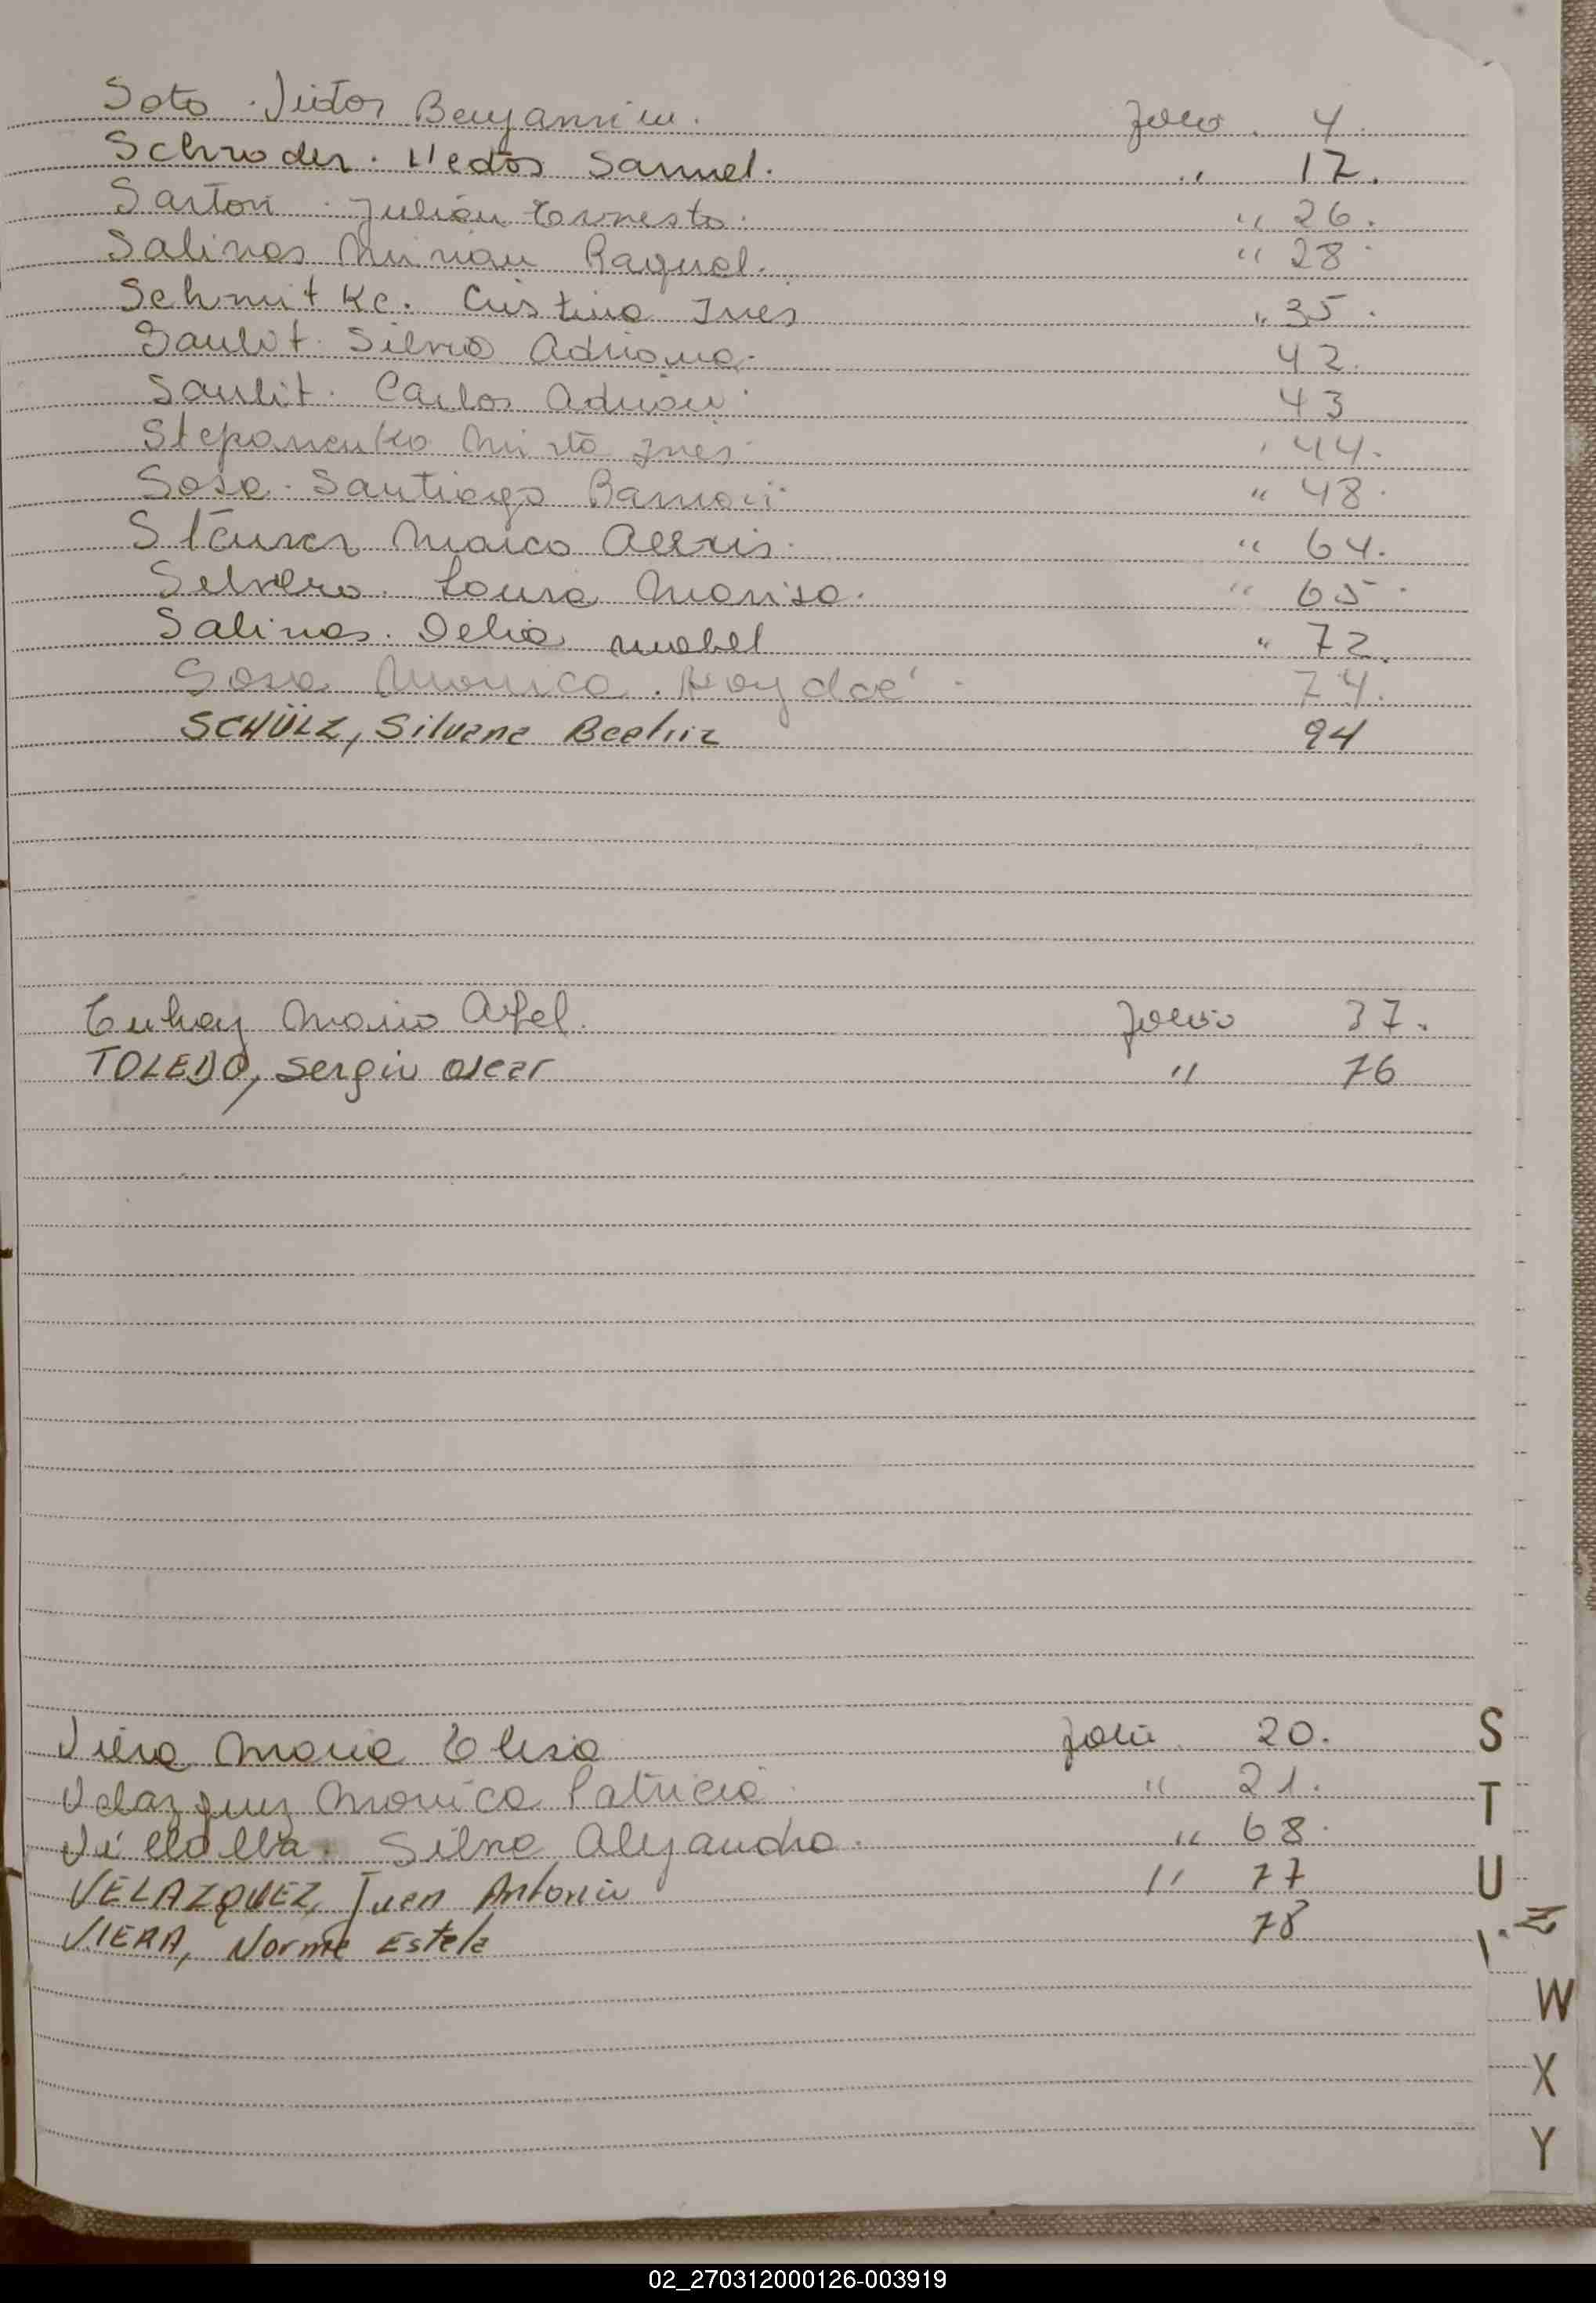 Soto Victor Benjamin. folio. 4.
Schroder. Samuel. " 17.
Sartori Julián Ernesto. " 26.
Salinas Mirian Raquel. " 28.
Schmit Kc. Cristina Ines " 35.
Saulit Silvia Adriana. 42.
Saulit. Carlos Adrián. 43
Stepanenko Mirta Ines. " 44.
Sosa. Santiago Ramón. " 48.
Marco Alexis. " 64.
Silvero. Laura Marisa. " 65.
Salinas. Delia mabel " 72.
Sosa Monica. Haydeé. 74.
SCHÜLZ, Silvana Beatriz 94
Mario Abel. folio 37.
TOLEDO, Sergio Oscar " 76
Viera Maria Elisa folio 20.
Velazquez Monica Patricia " 21.
Villalba. Silvia Alejandra. " 68.
VELAZQUEZ, Juan Antonio " 77
VIERA, Norma Estela 78
S
T
U
V
Z
W
X
Y
02_270312000126-003919